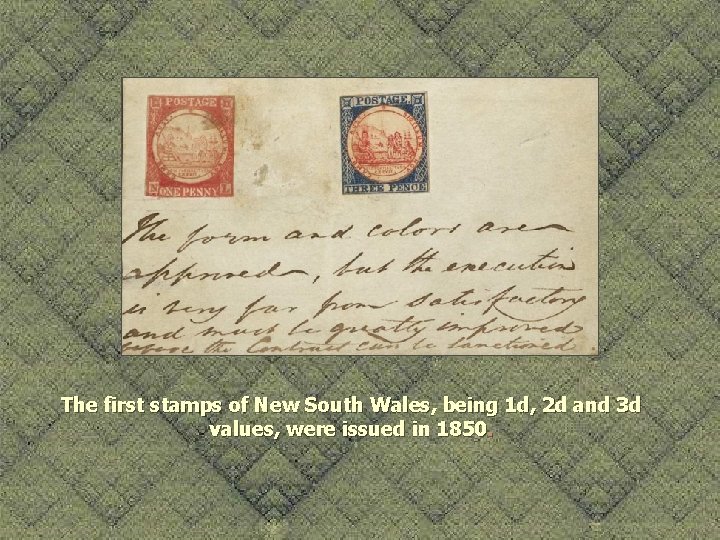 POSTAGE
ONE PENNY
POSTAGE.
THREE PENCE
The form and colors are
approved, but the execution
is very far from satisfactory
and must be greatly improved
before the Contract can be sanctioned.
The first stamps of New South Wales, being 1d, 2d and 3d
values, were issued in 1850.